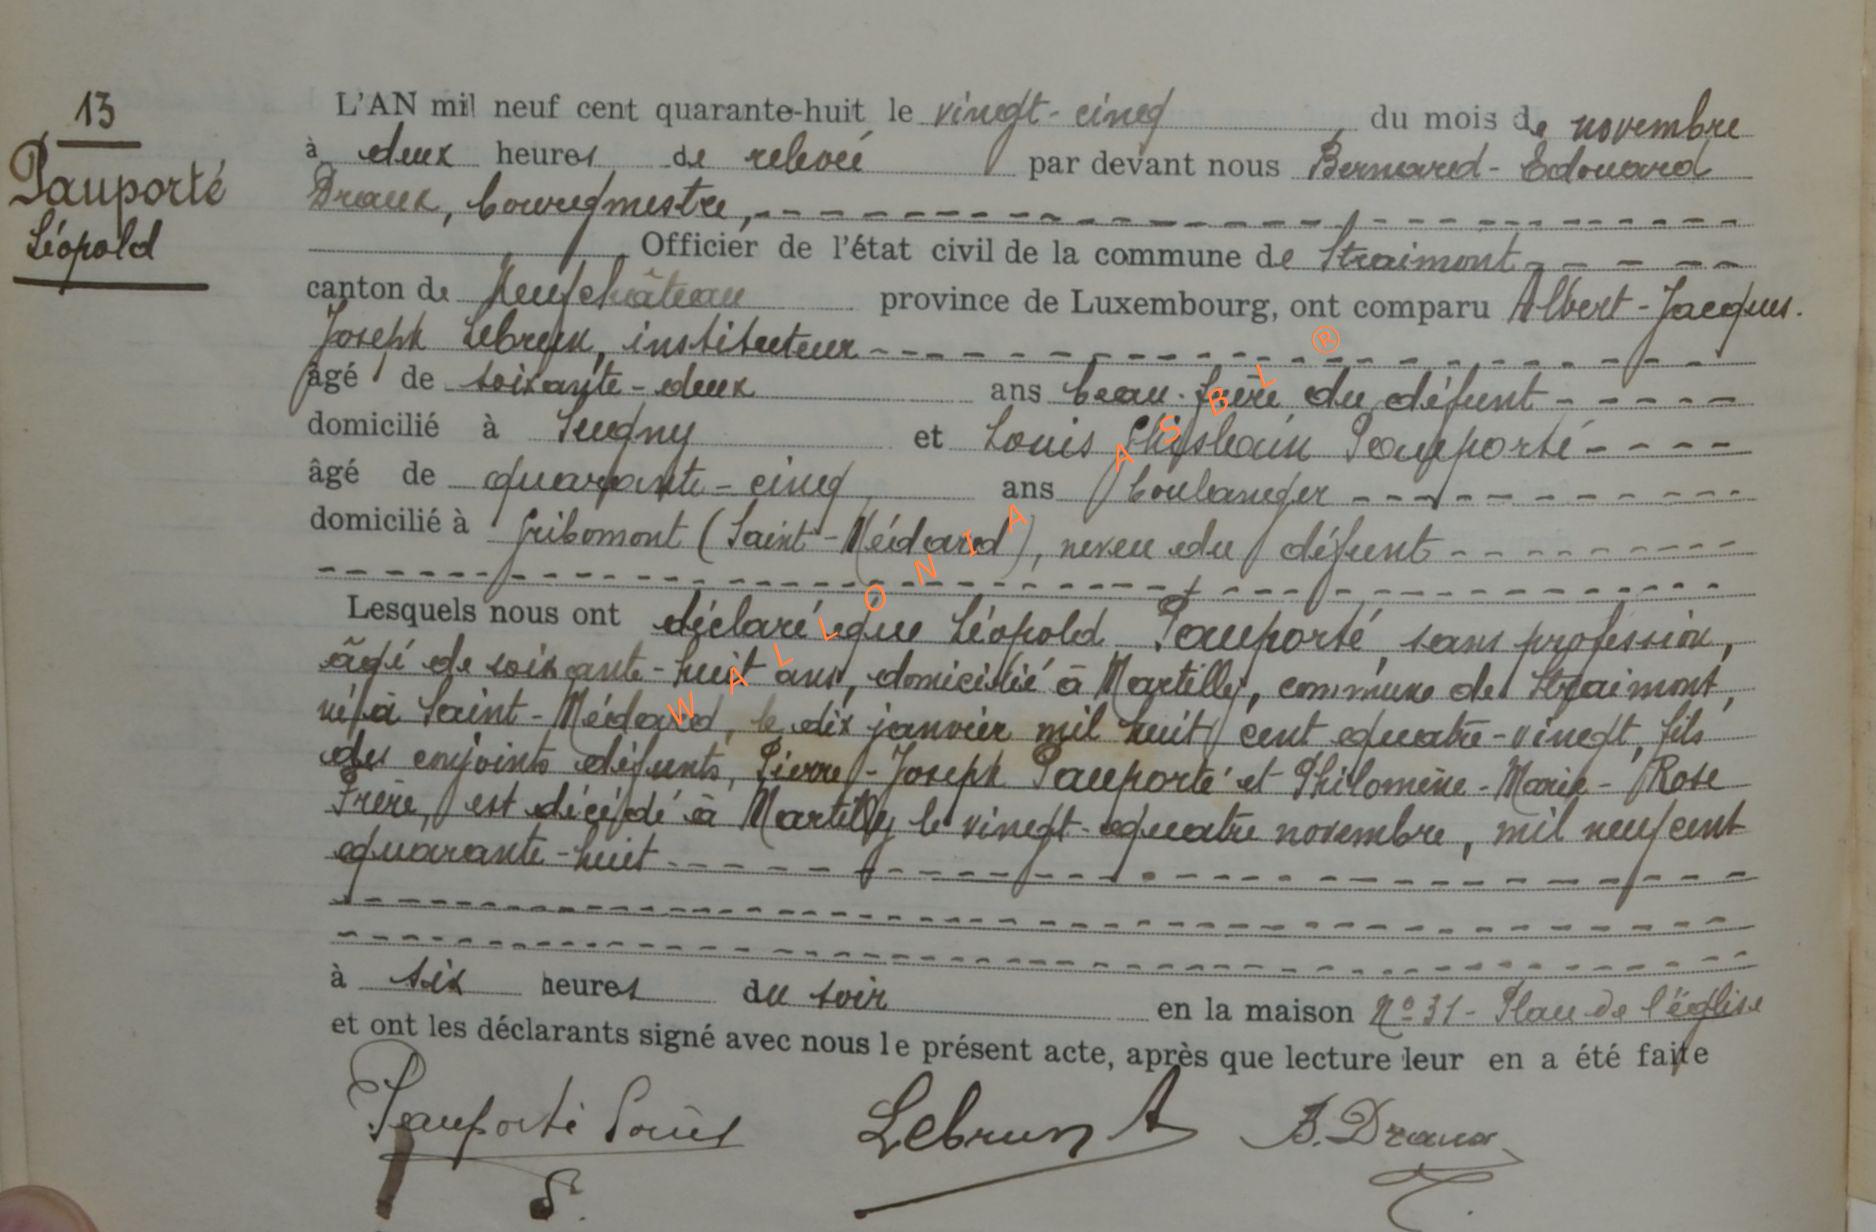 13
Pauporté
Léopold
L'AN mil neuf cent quarante-huit le vingt-cinq du mois de novembre
à deux heures de relevée par devant nous Bernard-Edouard
Draux, bourgmestre,
Officier de l'état civil de la commune de Straimont
canton de Neufchâteau province de Luxembourg, ont comparu Albert-Jacques-
Joseph Lebrun, instituteur
âgé de soixante-deux ans beau-frère du défunt
domicilié à Sugny et Louis Ghislain Pauporté
âgé de quarante-cinq ans boulanger
domicilié à Gribomont (Saint-Médard), neveu du défunt
Lesquels nous ont déclaré que Léopold Pauporté, sans profession,
âgé de soixante-huit ans, domicilié à Martilly, commune de Straimont,
né à Saint-Médard, le dix janvier mil huit cent quatre-vingt, fils
des conjoints défunts, Pierre-Joseph Pauporté et Philomène-Marie-Rose
Frère, est décédé à Martilly le vingt-quatre novembre, mil neuf cent
quarante-huit
à six heures du soir en la maison N° 31 - Plau de l'église
et ont les déclarants signé avec nous le présent acte, après que lecture leur en a été faite
Pauporté Louis Lebrun A B. Draux
WALLONIA ASBL ®